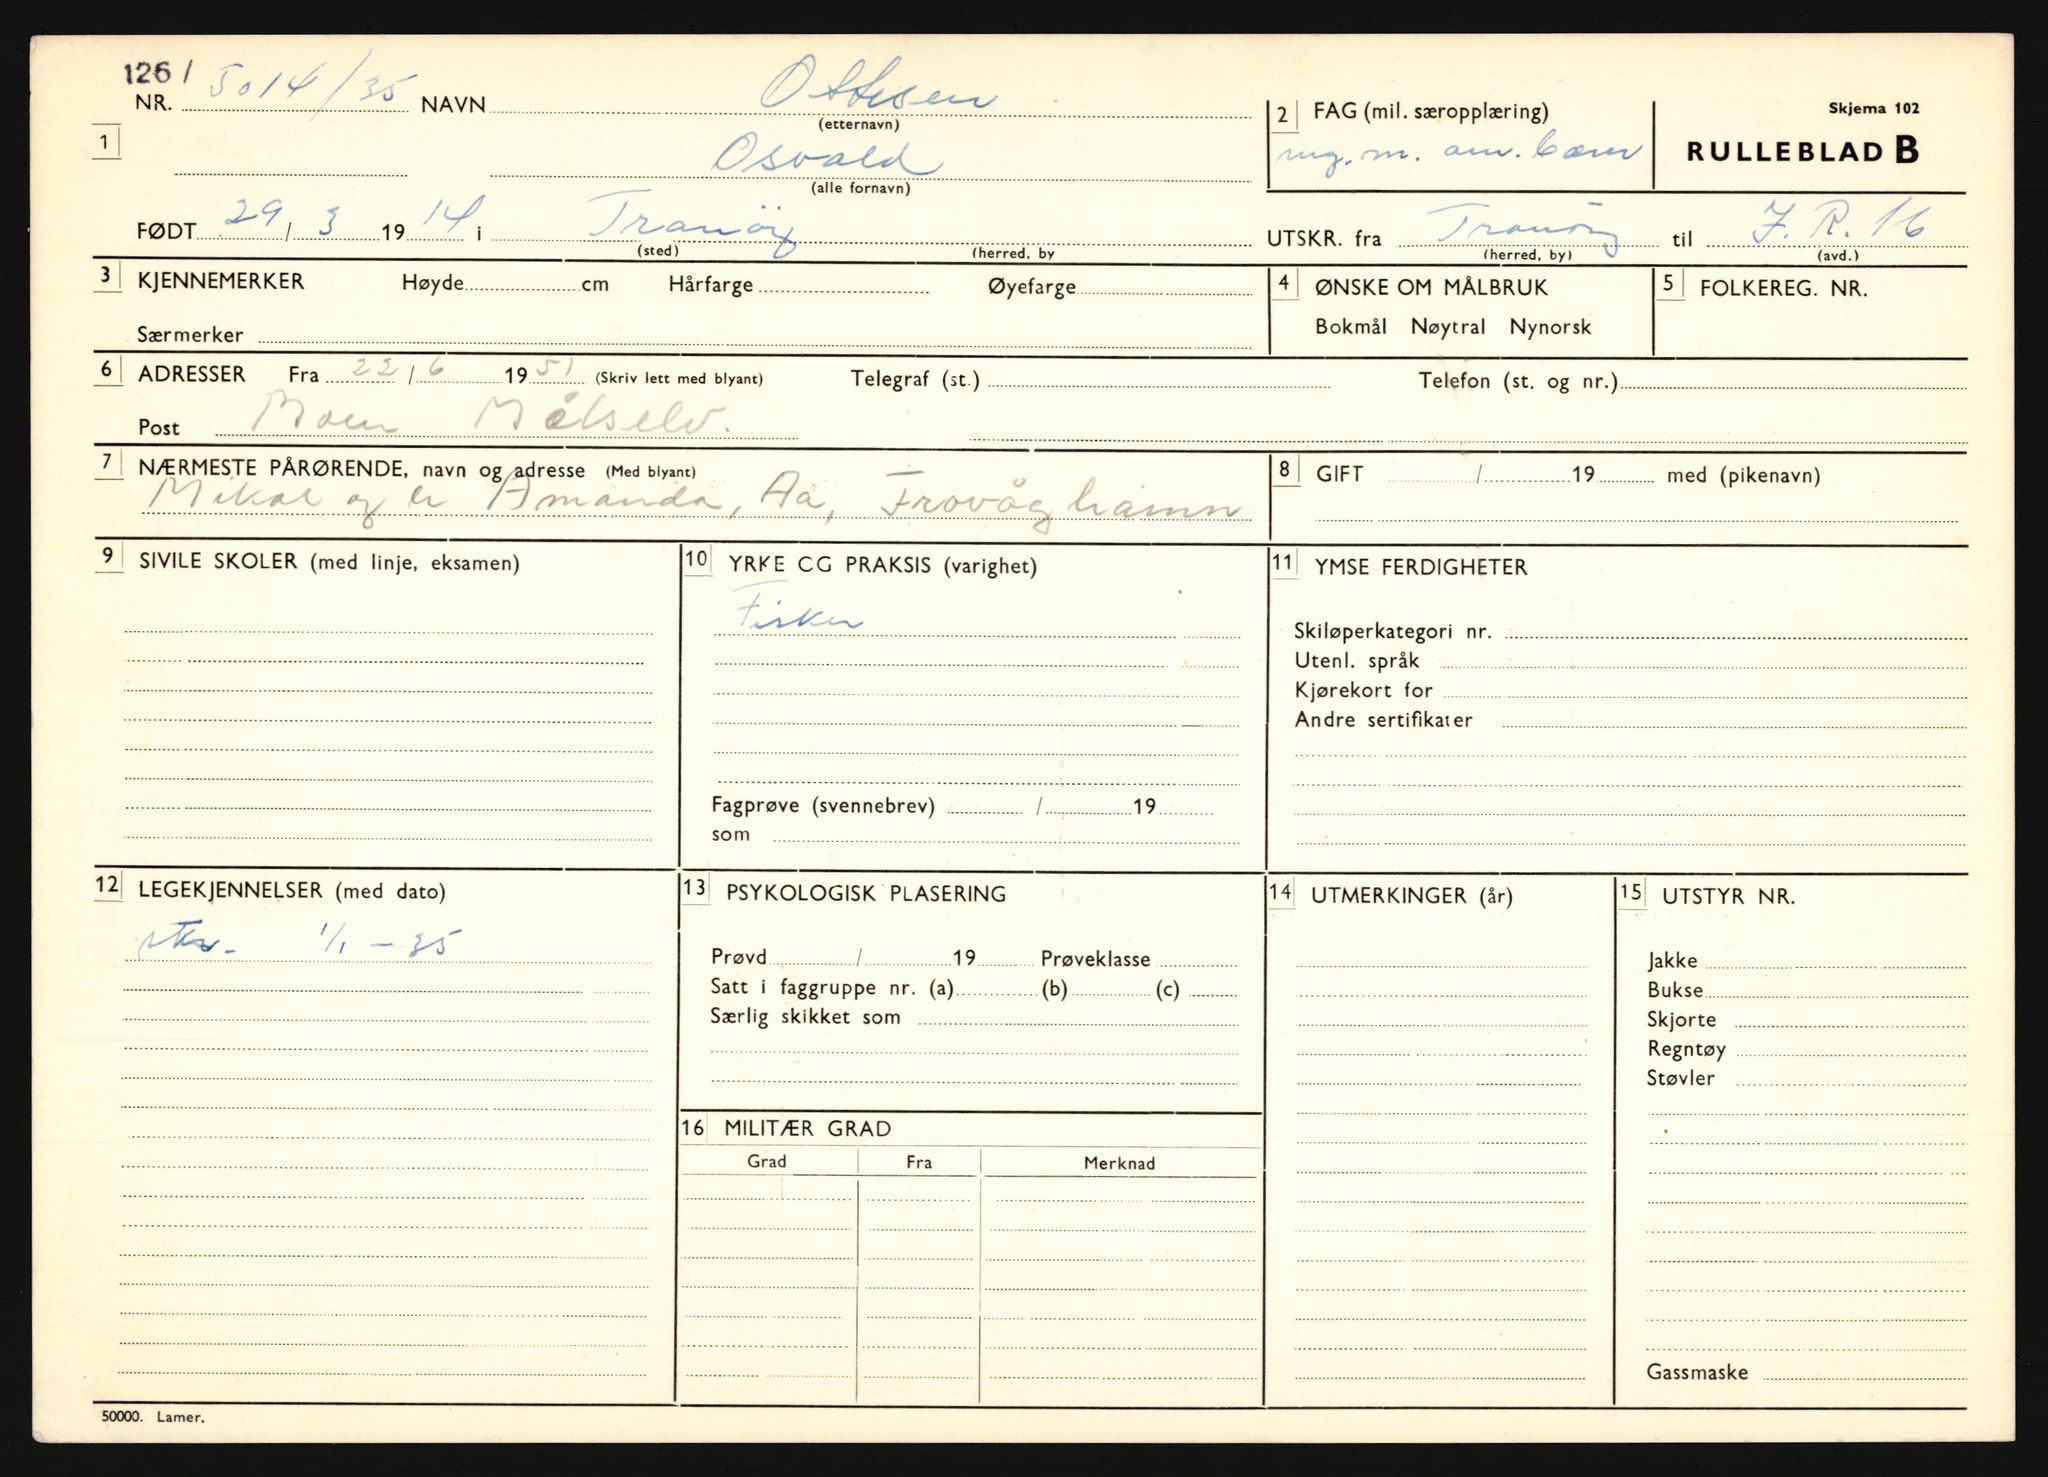 126/ 5014/35
NR. NAVN Ottesen
(etternavn)
1 Osvald
(alle fornavn)
2 FAG (mil. særopplæring)
m.
Skjema 102
RULLEBLAD B
FØDT 29/3 1914 i Tranöy
(sted) (herred, by
UTSKR. fra Tranöy til I.R. 16
(herred, by) (avd.)
3 KJENNEMERKER Høyde cm Hårfarge Øyefarge
Særmerker
4 ØNSKE OM MÅLBRUK
Bokmål Nøytral Nynorsk
5 FOLKEREG. NR.
6 ADRESSER Fra 22/6 1951 (Skriv lett med blyant) Telegraf (st.) Telefon (st. og nr.)
Post Moen Målselv.
7 NÆRMESTE PÅRØRENDE, navn og adresse (Med blyant)
Mikal og Amanda, Aa, Frovåghamn
8 GIFT / 19 med (pikenavn)
9 SIVILE SKOLER (med linje, eksamen)
10 YRKE CG PRAKSIS (varighet)
Fisker
Fagprøve (svennebrev) / 19
som
11 YMSE FERDIGHETER
Skiløperkategori nr.
Utenl. språk
Kjørekort for
Andre sertifikater
12 LEGEKJENNELSER (med dato)
1/1 – 35
13 PSYKOLOGISK PLASERING
Prøvd / 19 Prøveklasse
Satt i faggruppe nr. (a) (b) (c)
Særlig skikket som
14 UTMERKINGER (år)
15 UTSTYR NR.
Jakke
Bukse
Skjorte
Regntøy
Støvler
Gassmaske
16 MILITÆR GRAD
Grad Fra Merknad
50000. Lamer.